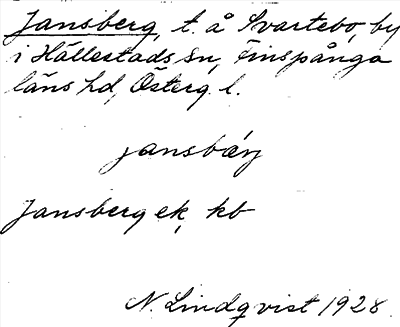 Jansberg, t. å Svartebo, by
i Hällestads sn, Finspånga
läns hd, Österg. l.
jansbärj
Jansberg ek, kb
N. Lindqvist 1928.